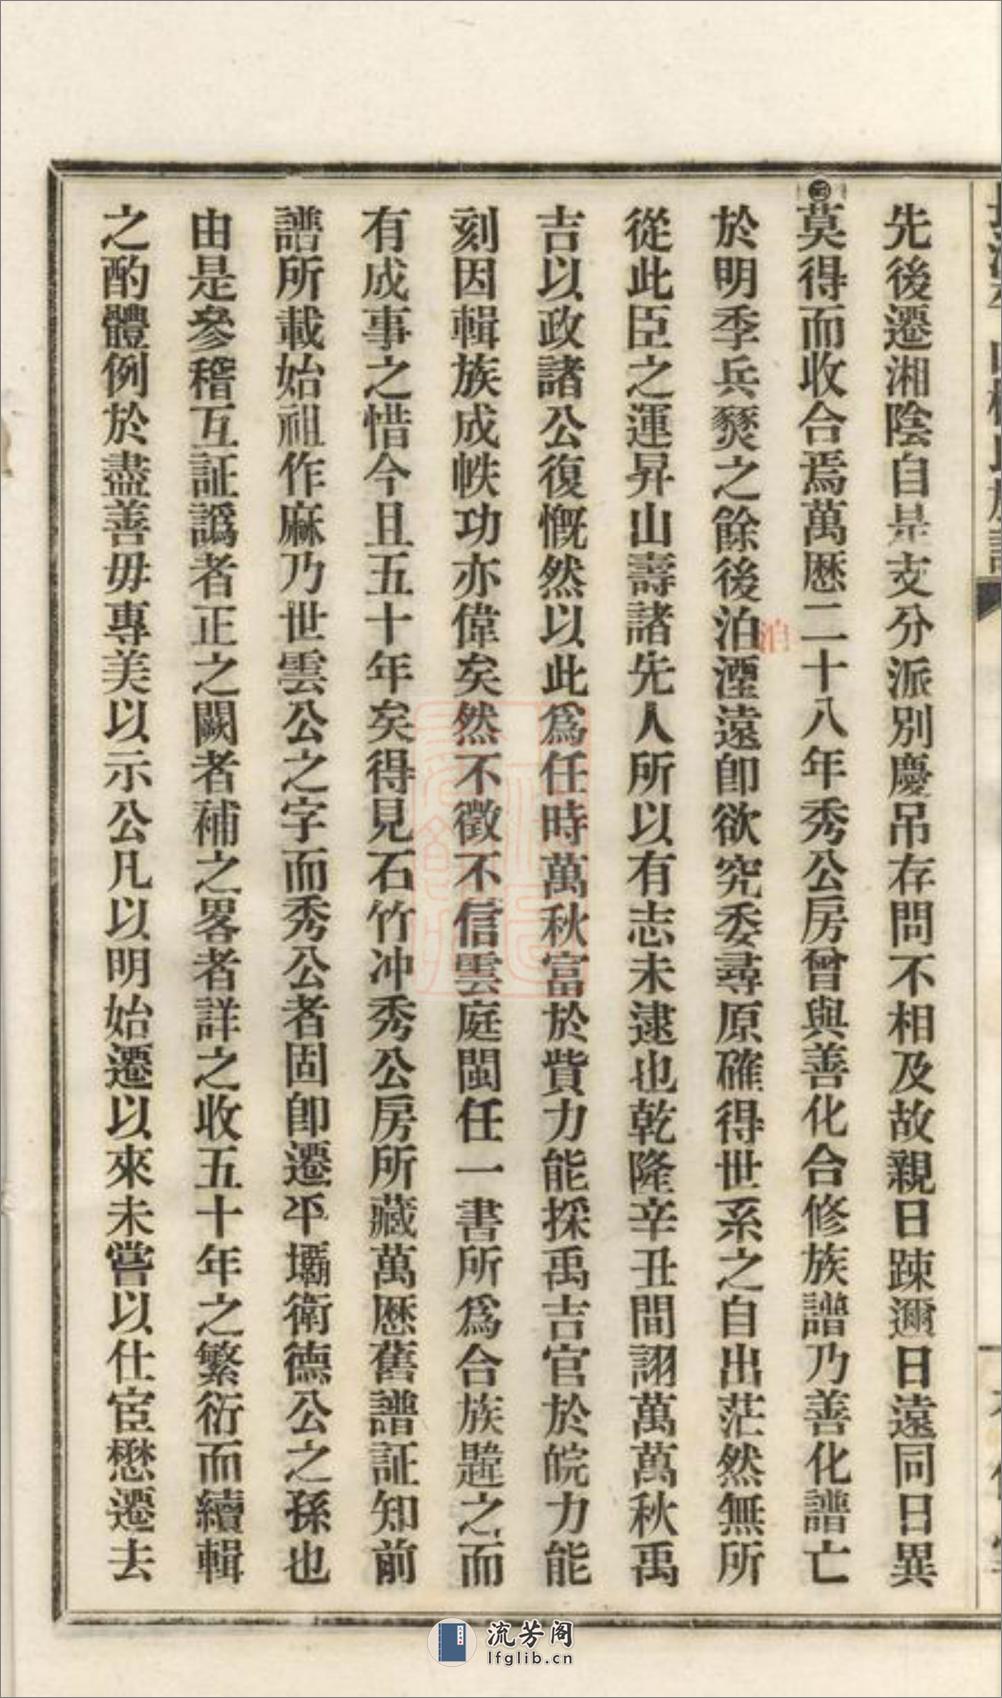 先後遷湘陰自是支分派別慶吊存問不相及故親日踈邇日遠同日異
莫得而收合焉萬厯二十八年秀公房曾與善化合修族譜乃善化譜亡
於明季兵燹之餘後泊湮遠卽欲究委尋原確得世系之自出茫然無所
泊
從此臣之運昇山壽諸先人所以有志未逮也乾隆辛丑間詡萬萬秋禹
吉以政諸公復慨然以此爲任時萬秋富於貲力能採禹吉官於皖力能
刻因輯族成帙功亦偉矣然不徵不信雲庭閩任一書所爲合族韙之而
有成事之惜今且五十年矣得見石竹冲秀公房所藏萬厯舊譜証知前
譜所載始祖作麻乃世雲公之字而秀公者固卽遷平壩衛德公之孫也
由是參稽互証譌者正之闕者補之畧者詳之收五十年之繁衍而續輯
之酌體例於盡善毋專美以示公凡以明始遷以來未嘗以仕宦懋遷去
流芳阁
lfglib.cn